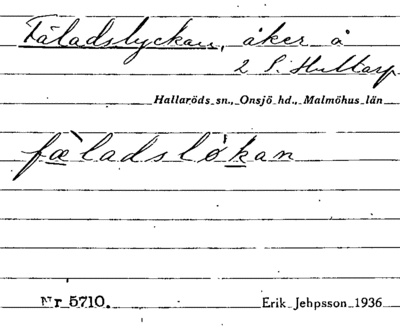 Fäladslyckan, åker å
2 S. Hultarp
Hallaröds sn., Onsjö hd., Malmöhus län
fæ̀ladslø̍kan
Nr 5710.
Erik Jehpsson 1936